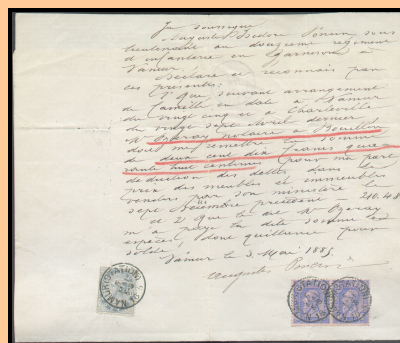 Je soussigné
Auguste                 sous
lieutenant au douzième régiment
d'infanterie en garnison à
Namur
Déclare et reconnais par
ces présentes:
1° que suivant arrangement
de famille en date à Namur
du vingt cinq et à Charleville
du vingt sept Avril dernier
Mr        notaire à Bouillon
doit me remettre la somme
de deux cent dix francs quar
rante huit centimes pour ma part
déduction des dettes dans le
prix des meubles et immeubles
vendus par son ministère le
sept              précédent = 210.48
et 2° que le dit Mr
m'a payé la dite somme en
espèces, donc quittance pour
solde,
Namur le 3 Mai 1885
Auguste
NAMUR (STATION)